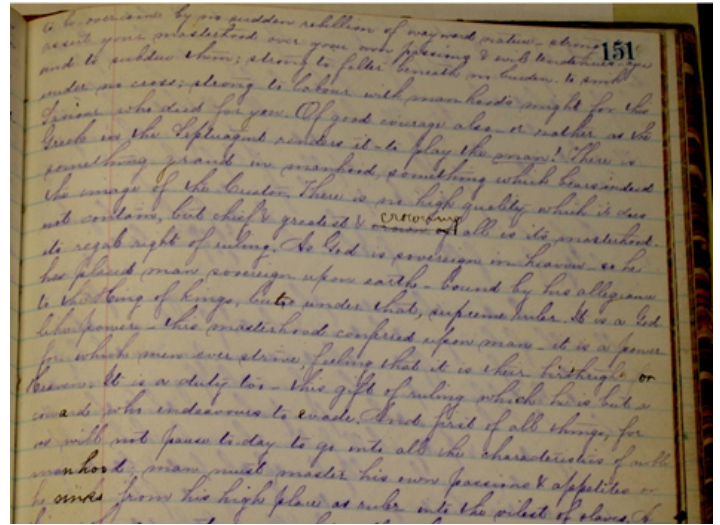 151
to be overcome by no sudden rebellion of wayward nature - strong to
assert your masterhood over your own passions & evil tendencies, aye
and to subdue them; strong to falter beneath no burden, to
under no cross; strong to labour with manhood's might for the
Saviour who died for you. Of good courage also - or rather as the
Greek in the Septuagint renders it - to play the man! There is
something grand in manhood, something which bears indeed
the image of the Creator. There is no high quality which it does
not contain, but chief & greatest & crowning of all is its masterhood -
its regal right of ruling. As God is sovereign in heaven - so he
has placed man sovereign upon earth - bound by his allegiance
to the King of Kings, but, under that, supreme ruler. It is a God
like power - this masterhood conferred upon man - it is a power
for which men ever strive, feeling that it is their birthright or
heaven. It is a duty too - this gift of ruling which he is but a
coward who endeavours to evade. And first of all things, for
we will not pause to day to go into all the characteristics of noble
manhood; man must master his own passions & appetites or
he sinks from his high place as ruler into the vilest of slaves.